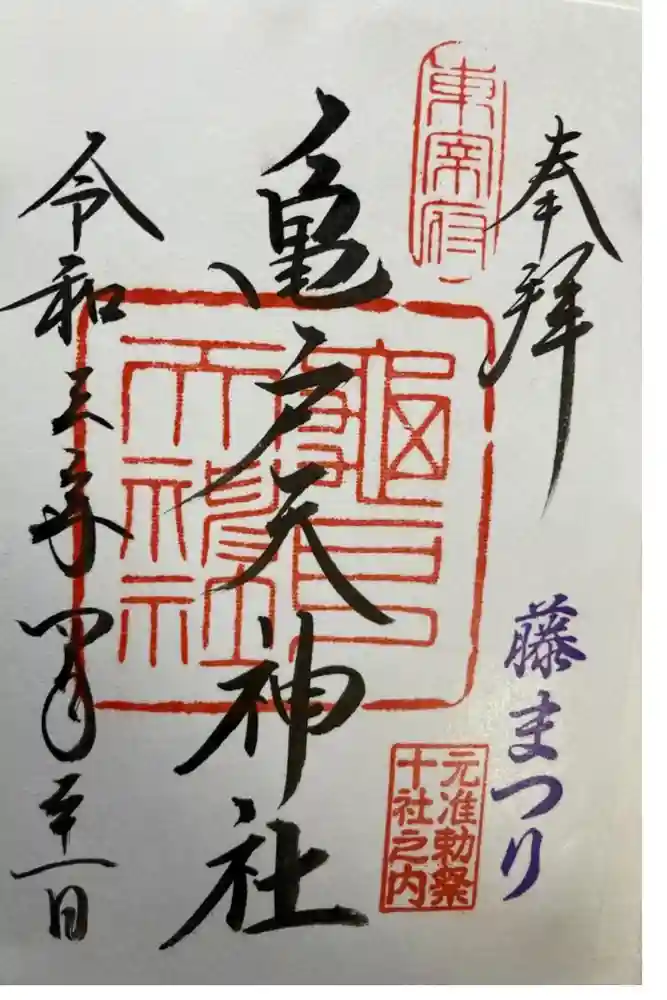 奉拝
藤まつり
東宰府
元准勅祭
十社之内
亀戸天神社
令和三年四月二十一日